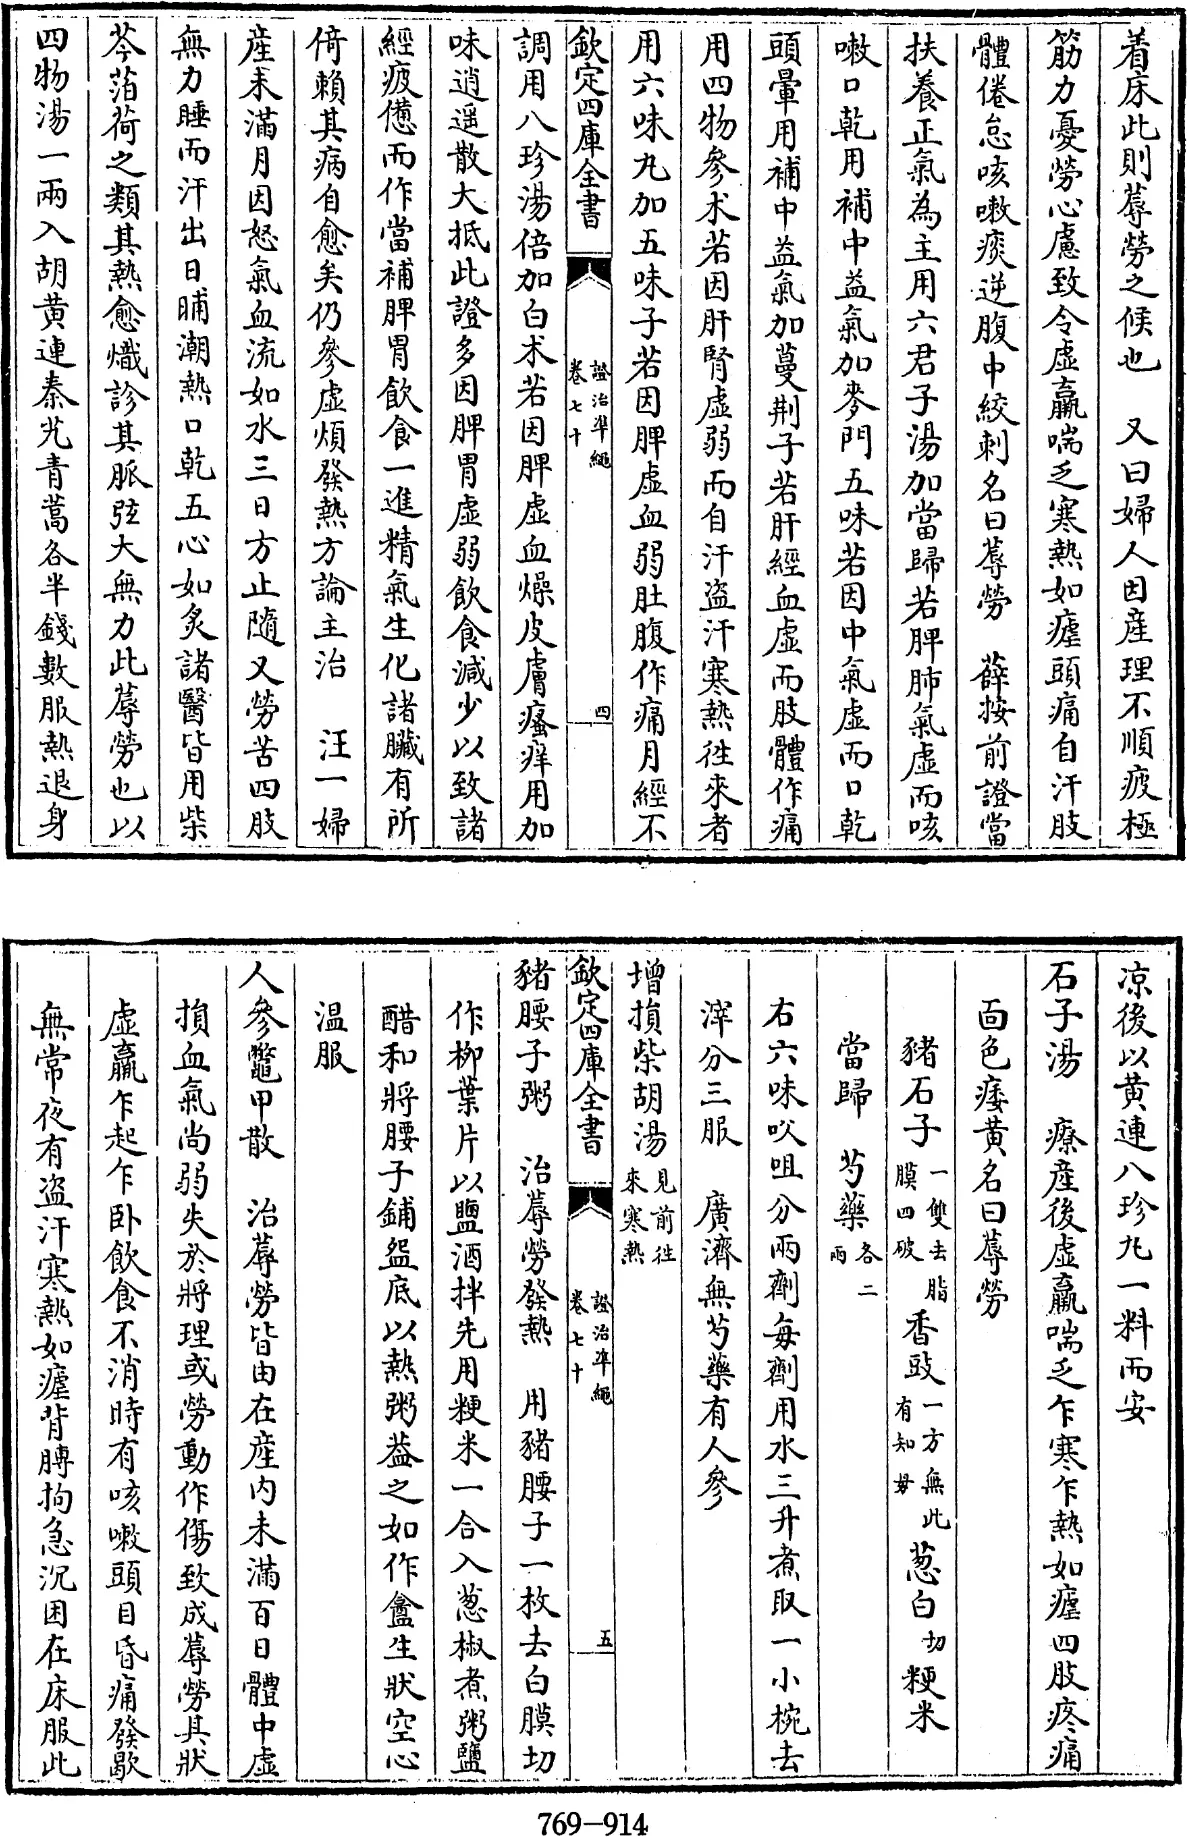 着床此則蓐勞之候也　又曰婦人因産理不順疲極
筋力憂勞心慮致令虛羸喘乏寒熱如瘧頭痛自汗肢
體倦怠咳嗽痰逆腹中絞刺名曰蓐勞　薛按前證當
扶養正氣為主用六君子湯加當歸若脾肺氣虛而咳
嗽口乾用補中益氣加麥門五味若因中氣虛而口乾
頭暈用補中益氣加蔓荆子若肝經血虛而肢體作痛
用四物參朮若因肝腎虛弱而自汗盜汗寒熱徃來者
用六味丸加五味子若因脾虛血弱肚腹作痛月經不
欽定四庫全書　證治準繩　卷七十　四
調用八珍湯倍加白朮若因脾虛血燥皮膚瘙痒用加
味逍遥散大抵此證多因脾胃虛弱飲食減少以致諸
經疲憊而作當補脾胃飲食一進精氣生化諸臟有所
倚賴其病自愈矣仍參虛煩發熱方論主治　汪一婦
産未滿月因怒氣血流如水三日方止隨又勞苦四肢
無力睡而汗出日晡潮熱口乾五心如炙諸醫皆用柴
芩薄荷之類其熱愈熾診其脈弦大無力此蓐勞也以
四物湯一兩入胡黄連秦艽青蒿各半錢數服熱退身
凉後以黄連八珍丸一料而安
石子湯　療産後虛羸喘乏乍寒乍熱如瘧四肢疼痛
面色痿黄名曰蓐勞
豬石子一雙去脂膜四破　香豉一方無此有知母　葱白切　粳米
當歸　芍藥各二兩
右六味㕮咀分兩劑每劑用水三升煮取一小椀去
滓分三服　廣濟無芍藥有人參
增損柴胡湯見前徃來寒熱
欽定四庫全書　證治準繩　卷七十　五
豬腰子粥　治蓐勞發熱　用豬腰子一枚去白膜切
作柳葉片以鹽酒拌先用粳米一合入葱椒煮粥鹽
醋和將腰子鋪盌底以熱粥葢之如作盦生狀空心
温服
人參鼈甲散　治蓐勞皆由在産内未滿百日體中虛
損血氣尚弱失於將理或勞動作傷致成蓐勞其狀
虛羸乍起乍卧飲食不消時有咳嗽頭目昏痛發歇
無常夜有盜汗寒熱如瘧背膊拘急沉困在床服此
769-914